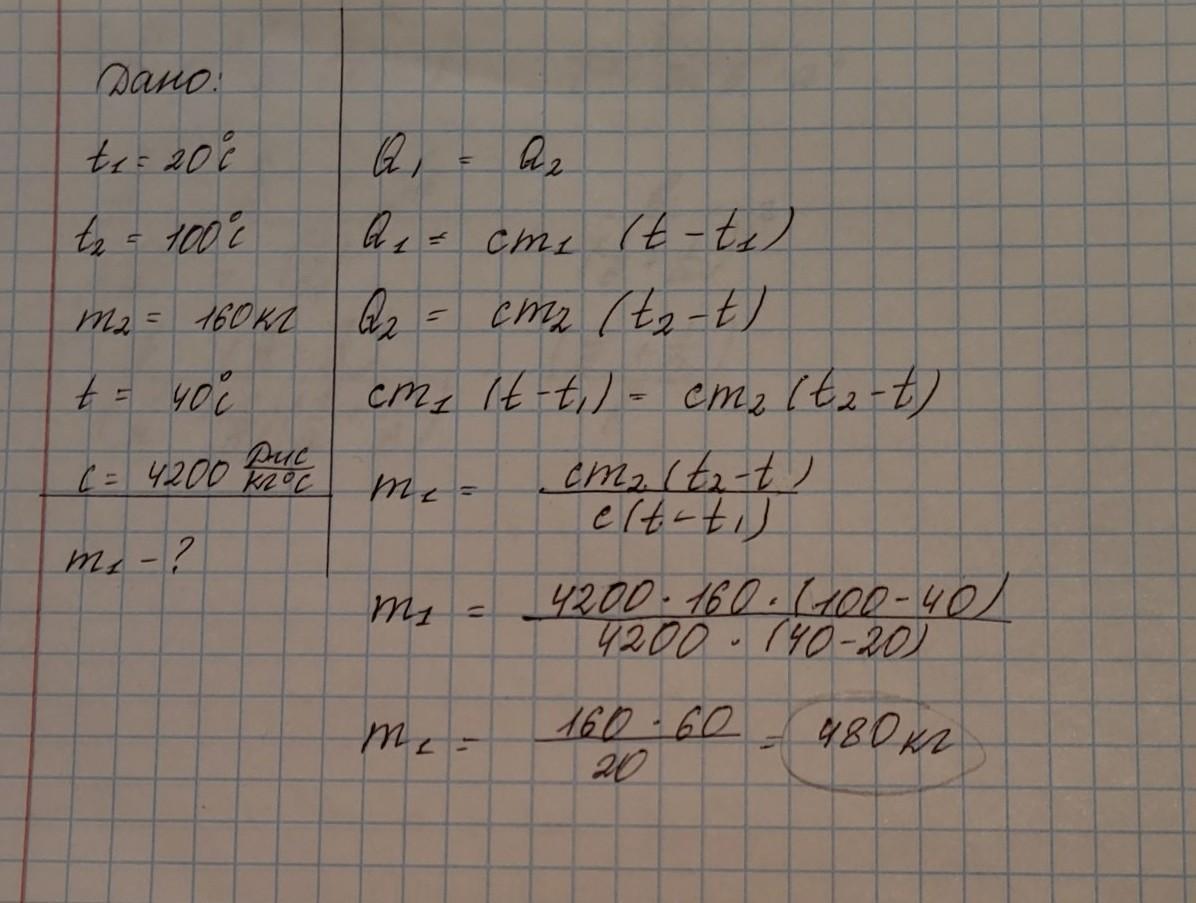 Дано:
t₁ = 20°C
t₂ = 100°C
m₂ = 160 кг
t = 40°C
c = 4200 Дж/кг°C
m₁ - ?
Q₁ = Q₂
Q₁ = cm₁ (t - t₁)
Q₂ = cm₂ (t₂ - t)
cm₁ (t - t₁) = cm₂ (t₂ - t)
m₁ = cm₂ (t₂ - t) / c (t - t₁)
m₁ = 4200 · 160 · (100 - 40) / 4200 · (40 - 20)
m₁ = 160 · 60 / 20 = 480 кг